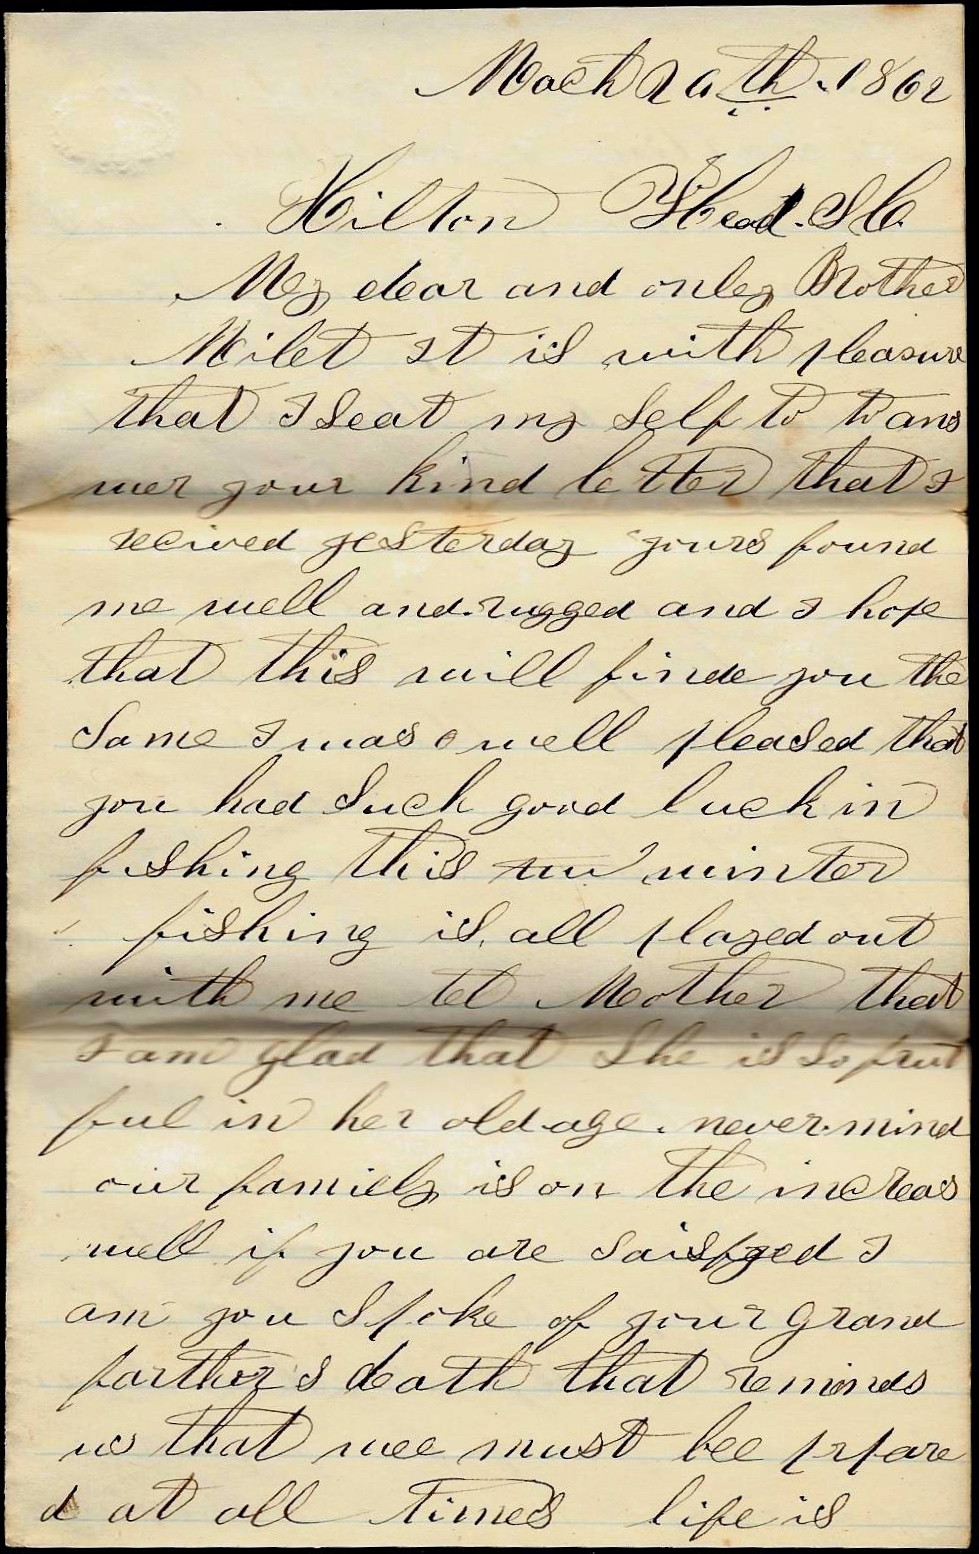 Mach 20th 1862
Hilton Head. S C.
My dear and only Brother
Milet It is with pleasure
that I seat my self to to ans
wer your kind letter that I
recived yesterday yours found
me well and rugged and I hope
that this will finde you the
Same I was well pleased that
you had Such good luck in
fishing this winter
fishing is all played out
with me tel Mother that
I am glad that She is So frut
ful in her old age. never mind
our famiely is on the increas
well if you are saisfyed I
am you Spoke of your grand
farther s death that reminds
us that wee must bee prpare
d at all times life is